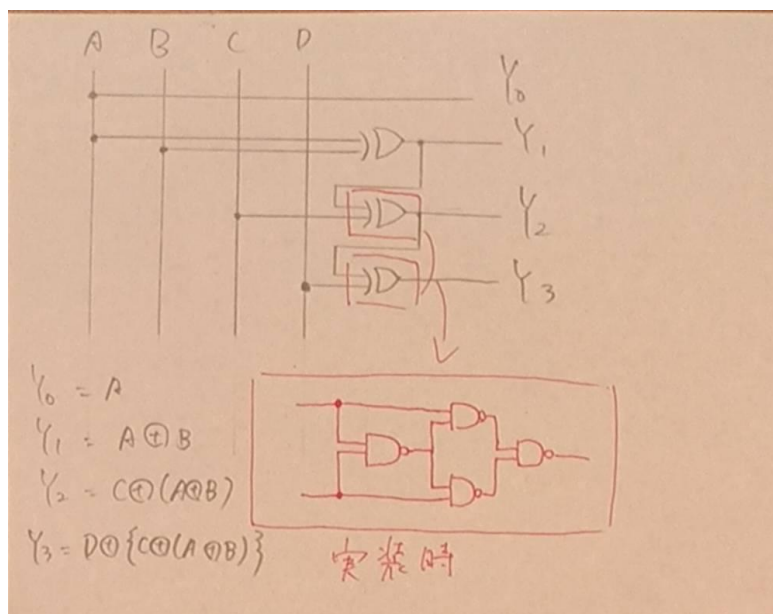 A B C D
Y₀
Y₁
Y₂
Y₃
Y₀ = A
Y₁ = A⊕B
Y₂ = C⊕(A⊕B)
Y₃ = D⊕{C⊕(A⊕B)}
実装時